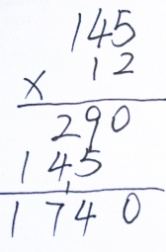 145
× 12
290
145
1740